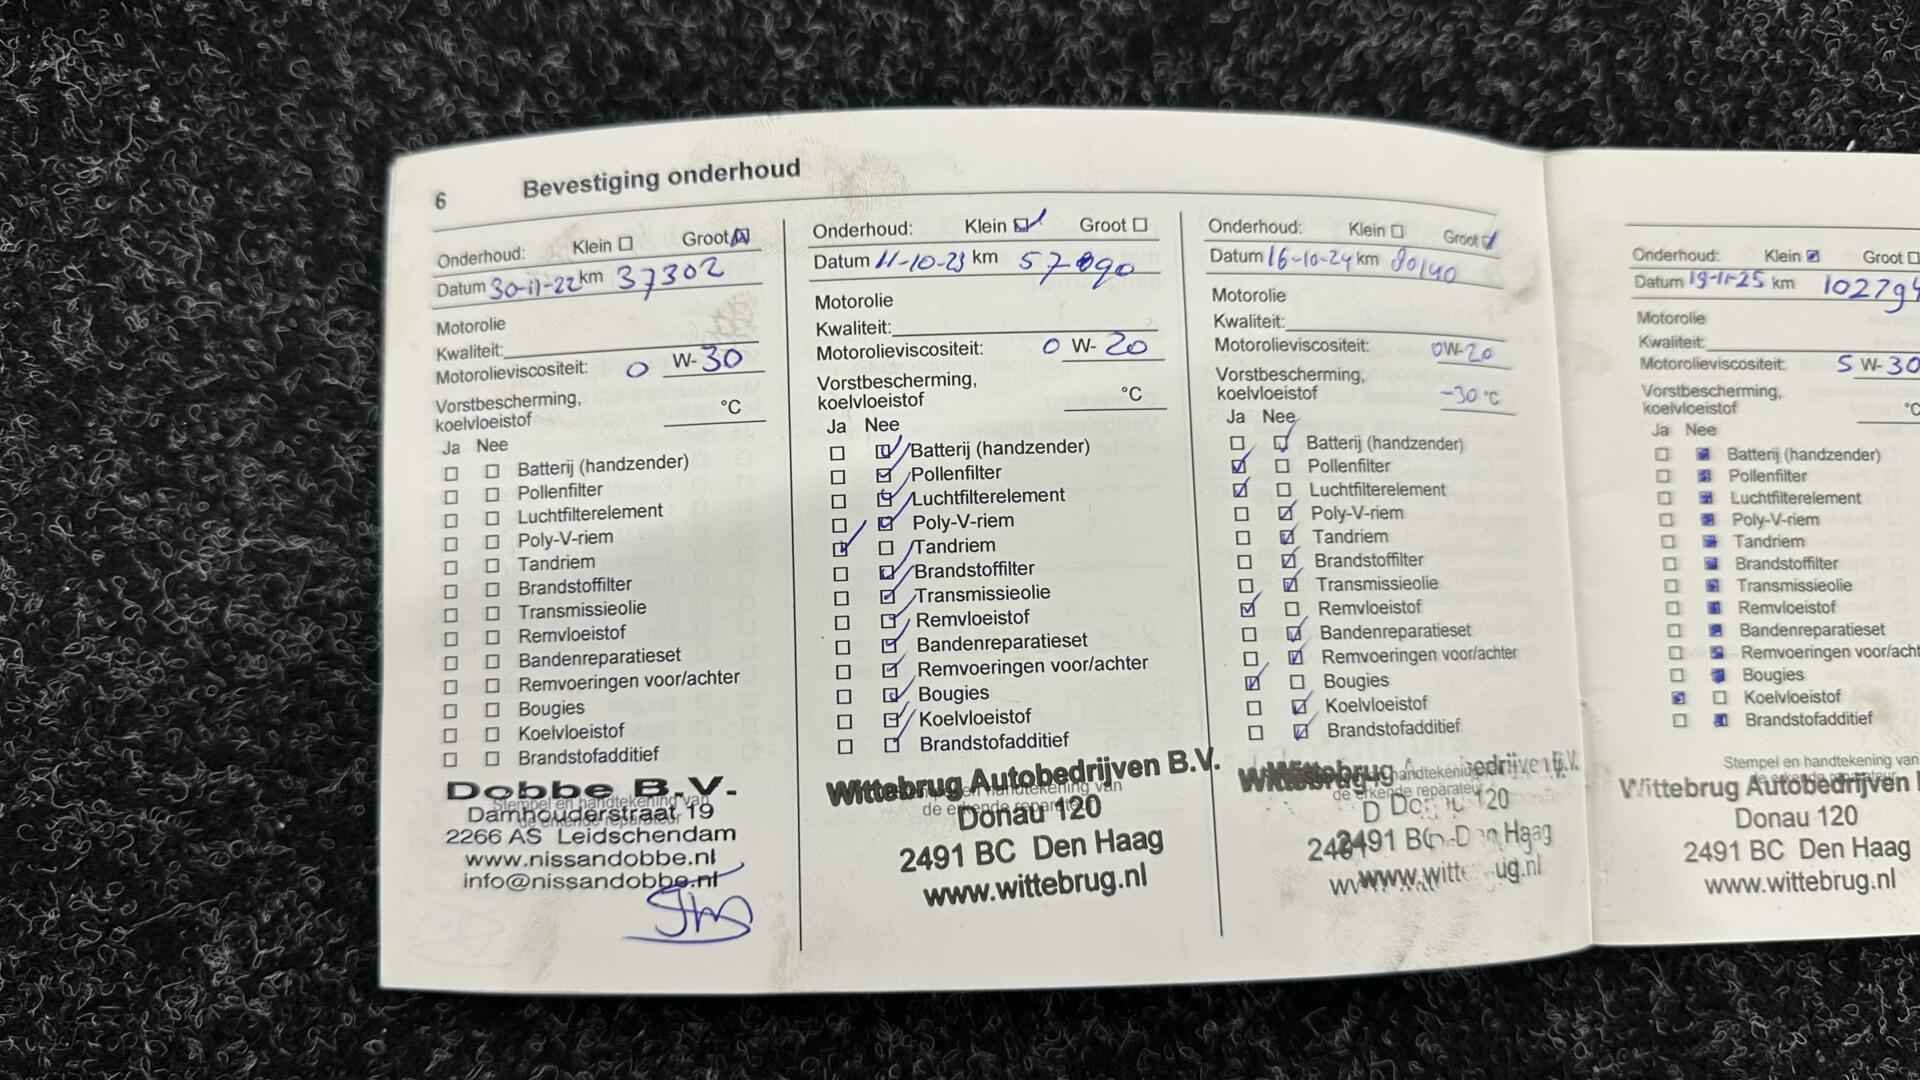 6 Bevestiging onderhoud
Onderhoud: Klein Groot
Datum 30-11-22 km 37302
Motorolie
Kwaliteit:
Motorolieviscositeit: 0 W-30
Vorstbescherming,
koelvloeistof °C
Ja Nee
Batterij (handzender)
Pollenfilter
Luchtfilterelement
Poly-V-riem
Tandriem
Brandstoffilter
Transmissieolie
Remvloeistof
Bandenreparatieset
Remvoeringen voor/achter
Bougies
Koelvloeistof
Brandstofadditief
Stempel en handtekening van
de erkende reparateur
Dobbe B.V.
Damhouderstraat 19
2266 AS Leidschendam
www.nissandobbe.nl
info@nissandobbe.nl
Onderhoud: Klein Groot
Datum 11-10-23 km
Motorolie
Kwaliteit:
Motorolieviscositeit: 0 W-20
Vorstbescherming,
koelvloeistof °C
Ja Nee
Batterij (handzender)
Pollenfilter
Luchtfilterelement
Poly-V-riem
Tandriem
Brandstoffilter
Transmissieolie
Remvloeistof
Bandenreparatieset
Remvoeringen voor/achter
Bougies
Koelvloeistof
Brandstofadditief
handtekening van
de erkende
Wittebrug Autobedrijven B.V.
Donau 120
2491 BC Den Haag
www.wittebrug.nl
Onderhoud: Klein Groot
Datum 16-10-24 km 80140
Motorolie
Kwaliteit:
Motorolieviscositeit: 0W-20
Vorstbescherming,
koelvloeistof -30 °C
Ja Nee
Batterij (handzender)
Pollenfilter
Luchtfilterelement
Poly-V-riem
Tandriem
Brandstoffilter
Transmissieolie
Remvloeistof
Bandenreparatieset
Remvoeringen voor/achter
Bougies
Koelvloeistof
Brandstofadditief
de erkende reparateur
Wittebrug
120
2491 Den Haag
Onderhoud: Klein Groot
Datum 19-11-25 km 102794
Motorolie
Kwaliteit:
Motorolieviscositeit: 5 W-30
Vorstbescherming,
koelvloeistof °C
Ja Nee
Batterij (handzender)
Pollenfilter
Luchtfilterelement
Poly-V-riem
Tandriem
Brandstoffilter
Transmissieolie
Remvloeistof
Bandenreparatieset
Remvoeringen voor/acht
Bougies
Koelvloeistof
Brandstofadditief
Stempel en handtekening van
de erkende reparateur
Wittebrug Autobedrijven
Donau 120
2491 BC Den Haag
www.wittebrug.nl